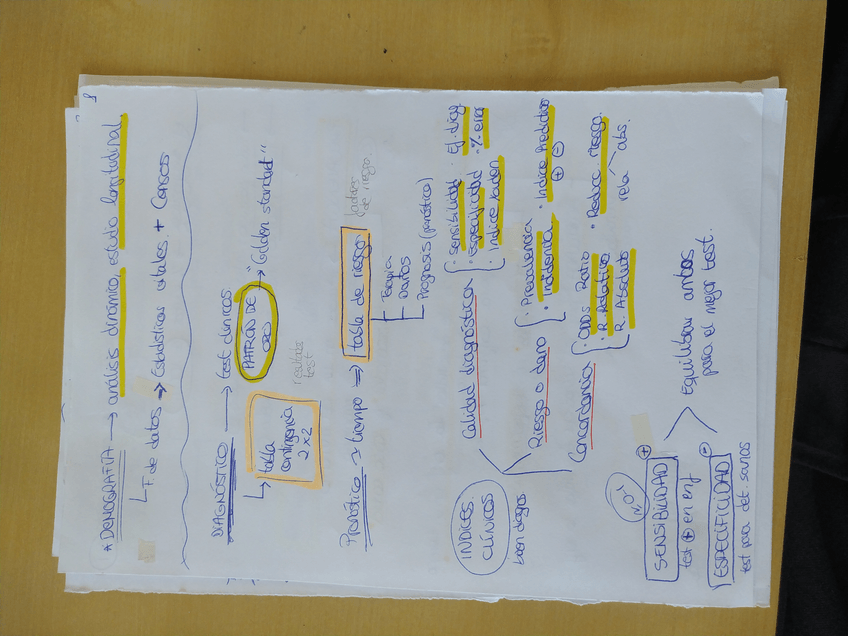 * DEMOGRAFIA → análisis dinámico, estudio longitudinal.
↳ F. de datos → Estadísticas vitales + Censos
DIAGNÓSTICO → test clínicos
↳ tabla contingencia 2x2
PATRÓN DE ORO → "Golden standard"
resultado test
Pronóstico → tiempo ⇒ tabla de riesgo
factores de riesgo
Terapia
Daños
Prognosis (pronóstico)
INDICES CLÍNICOS
buen diagnos
Calidad diagnósticos
· Sensibilidad · Ef. diag
· Especificidad · % error
· Indice Youden
Riesgo o daño
· Prevalencia
· Incidencia
· Indice Predictivo
+ -
Concordancia
· ODDs Ratio
· R. Relativo
R. Absoluto
· Reduce riesgo.
rela abs.
SENSIBILIDAD +
test + en enf
ESPECIFICIDAD -
test para det. sanos
Equilibrar ambos
para el mejor test.